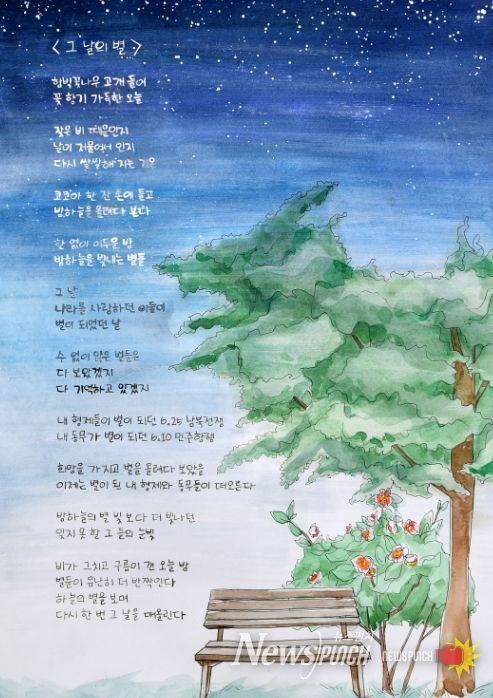 < 그 날의 별 >
함박꽃나무 고개 들어
꽃 향기 가득한 오늘
잦은 비 때문인지
날이 저물어서 인지
다시 쌀쌀해 지는 기온
코코아 한 잔 손에 들고
밤하늘을 올려다 본다
한 없이 어두운 밤
밤하늘을 빛내는 별들
그 날
나라를 사랑하던 이들이
별이 되었던 날
수 없이 많은 별들은
다 보았겠지
다 기억하고 있겠지
내 형제들이 별이 되던 6.25 남북전쟁
내 동무가 별이 되던 6.10 민주항쟁
희망을 가지고 별을 올려다 보았을
이제는 별이 된 내 형제와 동무들이 떠오른다
밤하늘의 별 빛 보다 더 빛나던
잊지 못 할 그 들의 눈빛
비가 그치고 구름이 갠 오늘 밤
별들이 유난히 더 반짝인다
하늘의 별을 보며
다시 한 번 그 날을 떠올린다
뉴스펀치
NewsPUNCH
NEWSPUNCH